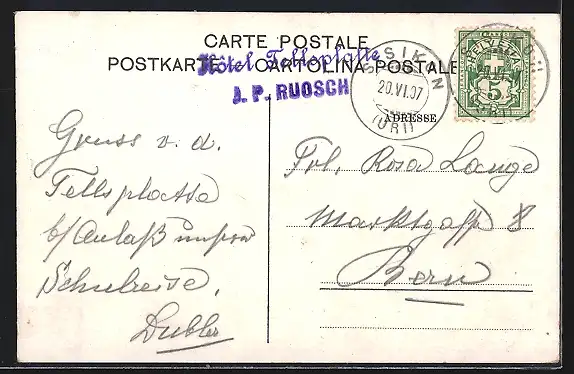 CARTE POSTALE
POSTKARTE CARTOLINA POSTALE
Hôtel Tellsplatte
J. P. RUOSCH
SISIKON
20.VI.07
(URI)
HELVETIA
5
ADRESSE
Gruss v. d.
Tellsplatte
b/Anlaß unserer
Schulreise.
Dubler
Frl. Rosa Lange
Marktgass 8
Bern